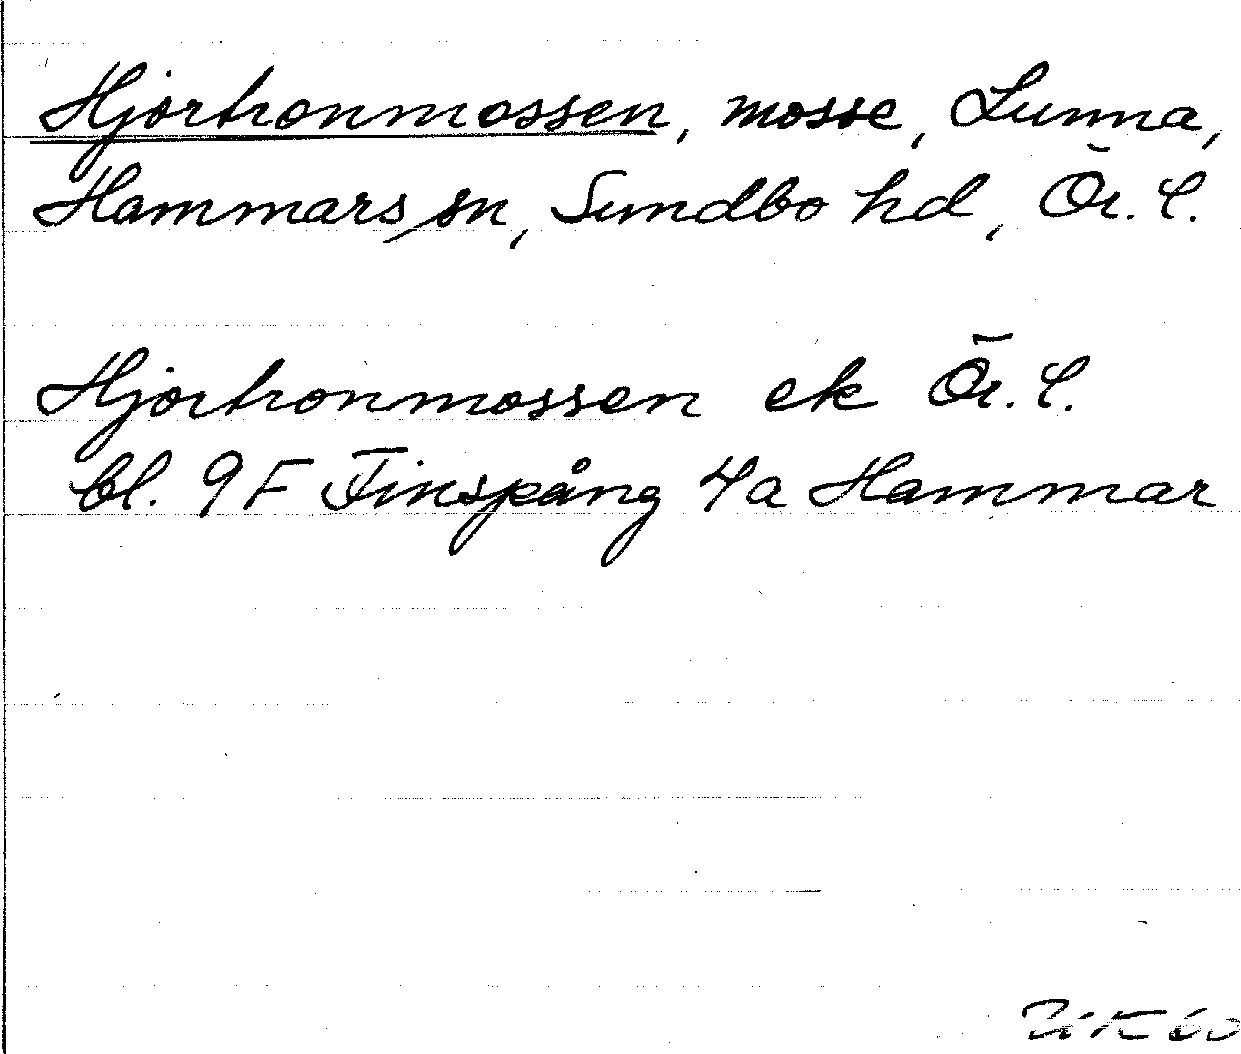 Hjortronmossen, mosse, Lunna,
Hammars sn, Sundbo hd, Ör. l.
Hjortronmossen ek Ör. l.
bl. 9F Finspång 4a Hammar